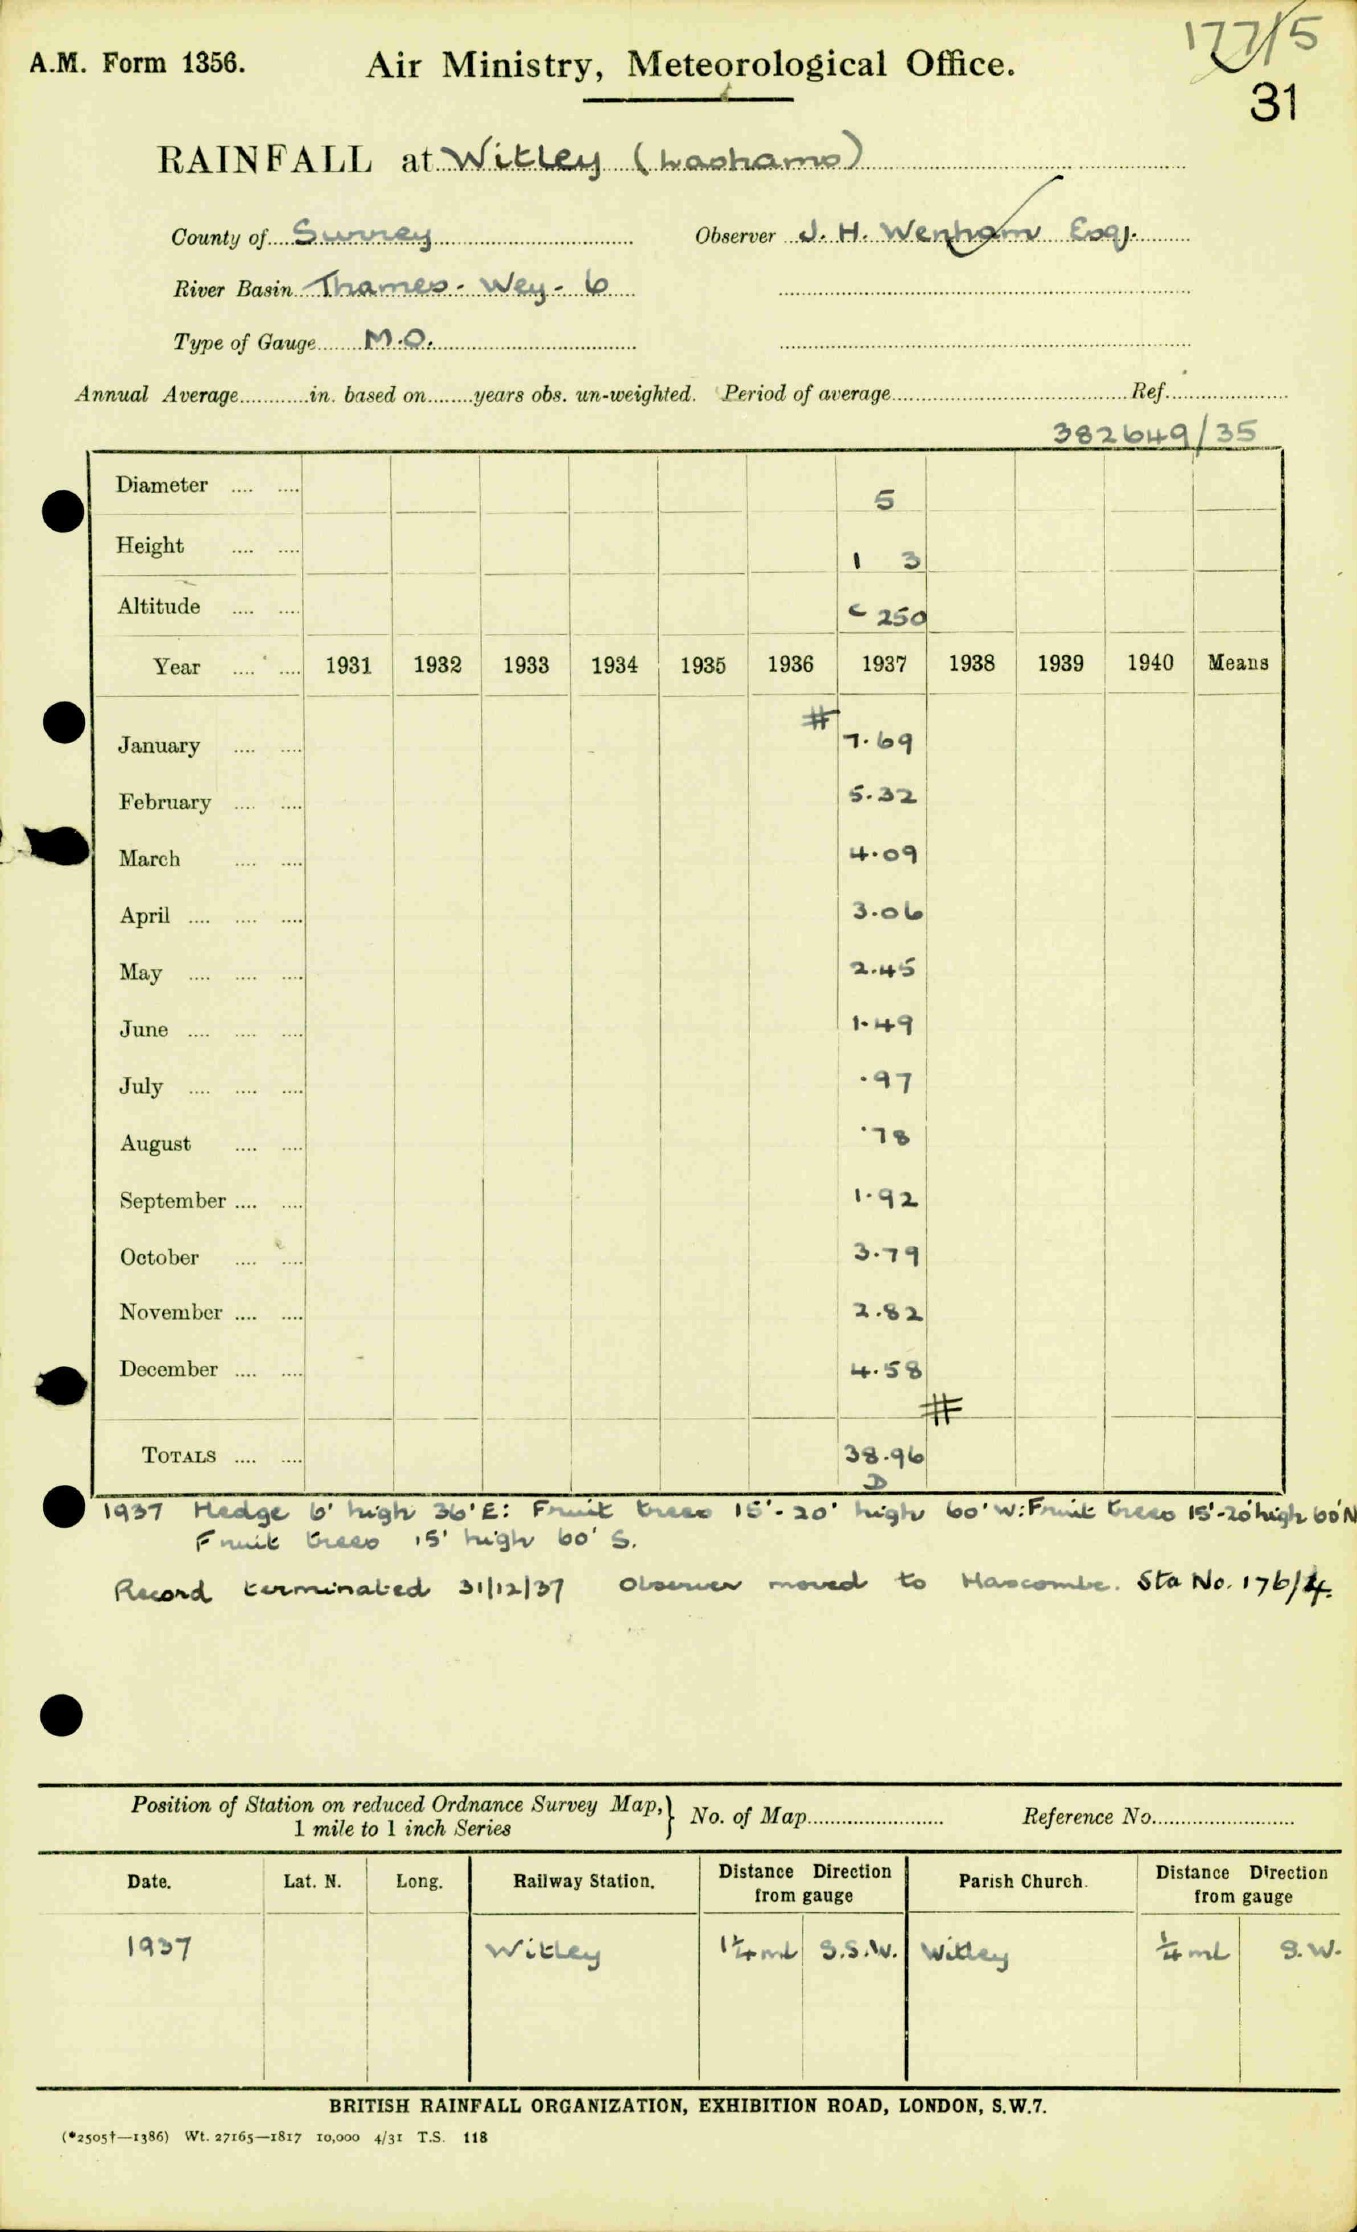 177/5
A.M. Form 1356. Air Ministry, Meteorological Office.
31
RAINFALL at Witley (Lashams)
County of Surrey Observer J. H. Wenham Esq.
River Basin Thames - Wey - 6
Type of Gauge M.O.
Annual Average in. based on years obs. un-weighted. Period of average Ref.
382649/35
Diameter 5
Height 1 3
Altitude c 250
Year 1931 1932 1933 1934 1935 1936 1937 1938 1939 1940 Means
#
January 7.69
February 5.32
March 4.09
April 3.06
May 2.45
June 1.49
July .97
August .78
September 1.92
October 3.79
November 2.82
December 4.58
#
TOTALS 38.96
D
1937 Hedge 6' high 36' E: Fruit trees 15'-20' high 60' W: Fruit trees 15'-20' high 60' N
Fruit trees 15' high 60' S.
Record terminated 31/12/37 Observer moved to Hascombe. Sta No. 176/4.
Position of Station on reduced Ordnance Survey Map, } No. of Map Reference No.
1 mile to 1 inch Series
Date. Lat. N. Long. Railway Station. Distance Direction from gauge Parish Church. Distance Direction from gauge
1937 Witley 1¼ ml S.S.W. Witley ¼ ml S.W.
BRITISH RAINFALL ORGANIZATION, EXHIBITION ROAD, LONDON, S.W.7.
(*2505†—1386) Wt. 27165—1817 10,000 4/31 T.S. 118